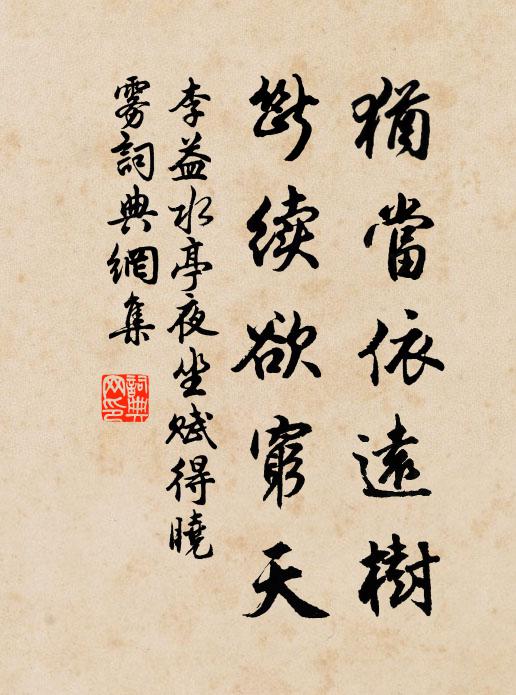 猶當依遠樹
斷續欲窮天
李益水亭夜坐賦得曉
霧詞典網集
詞典
网印